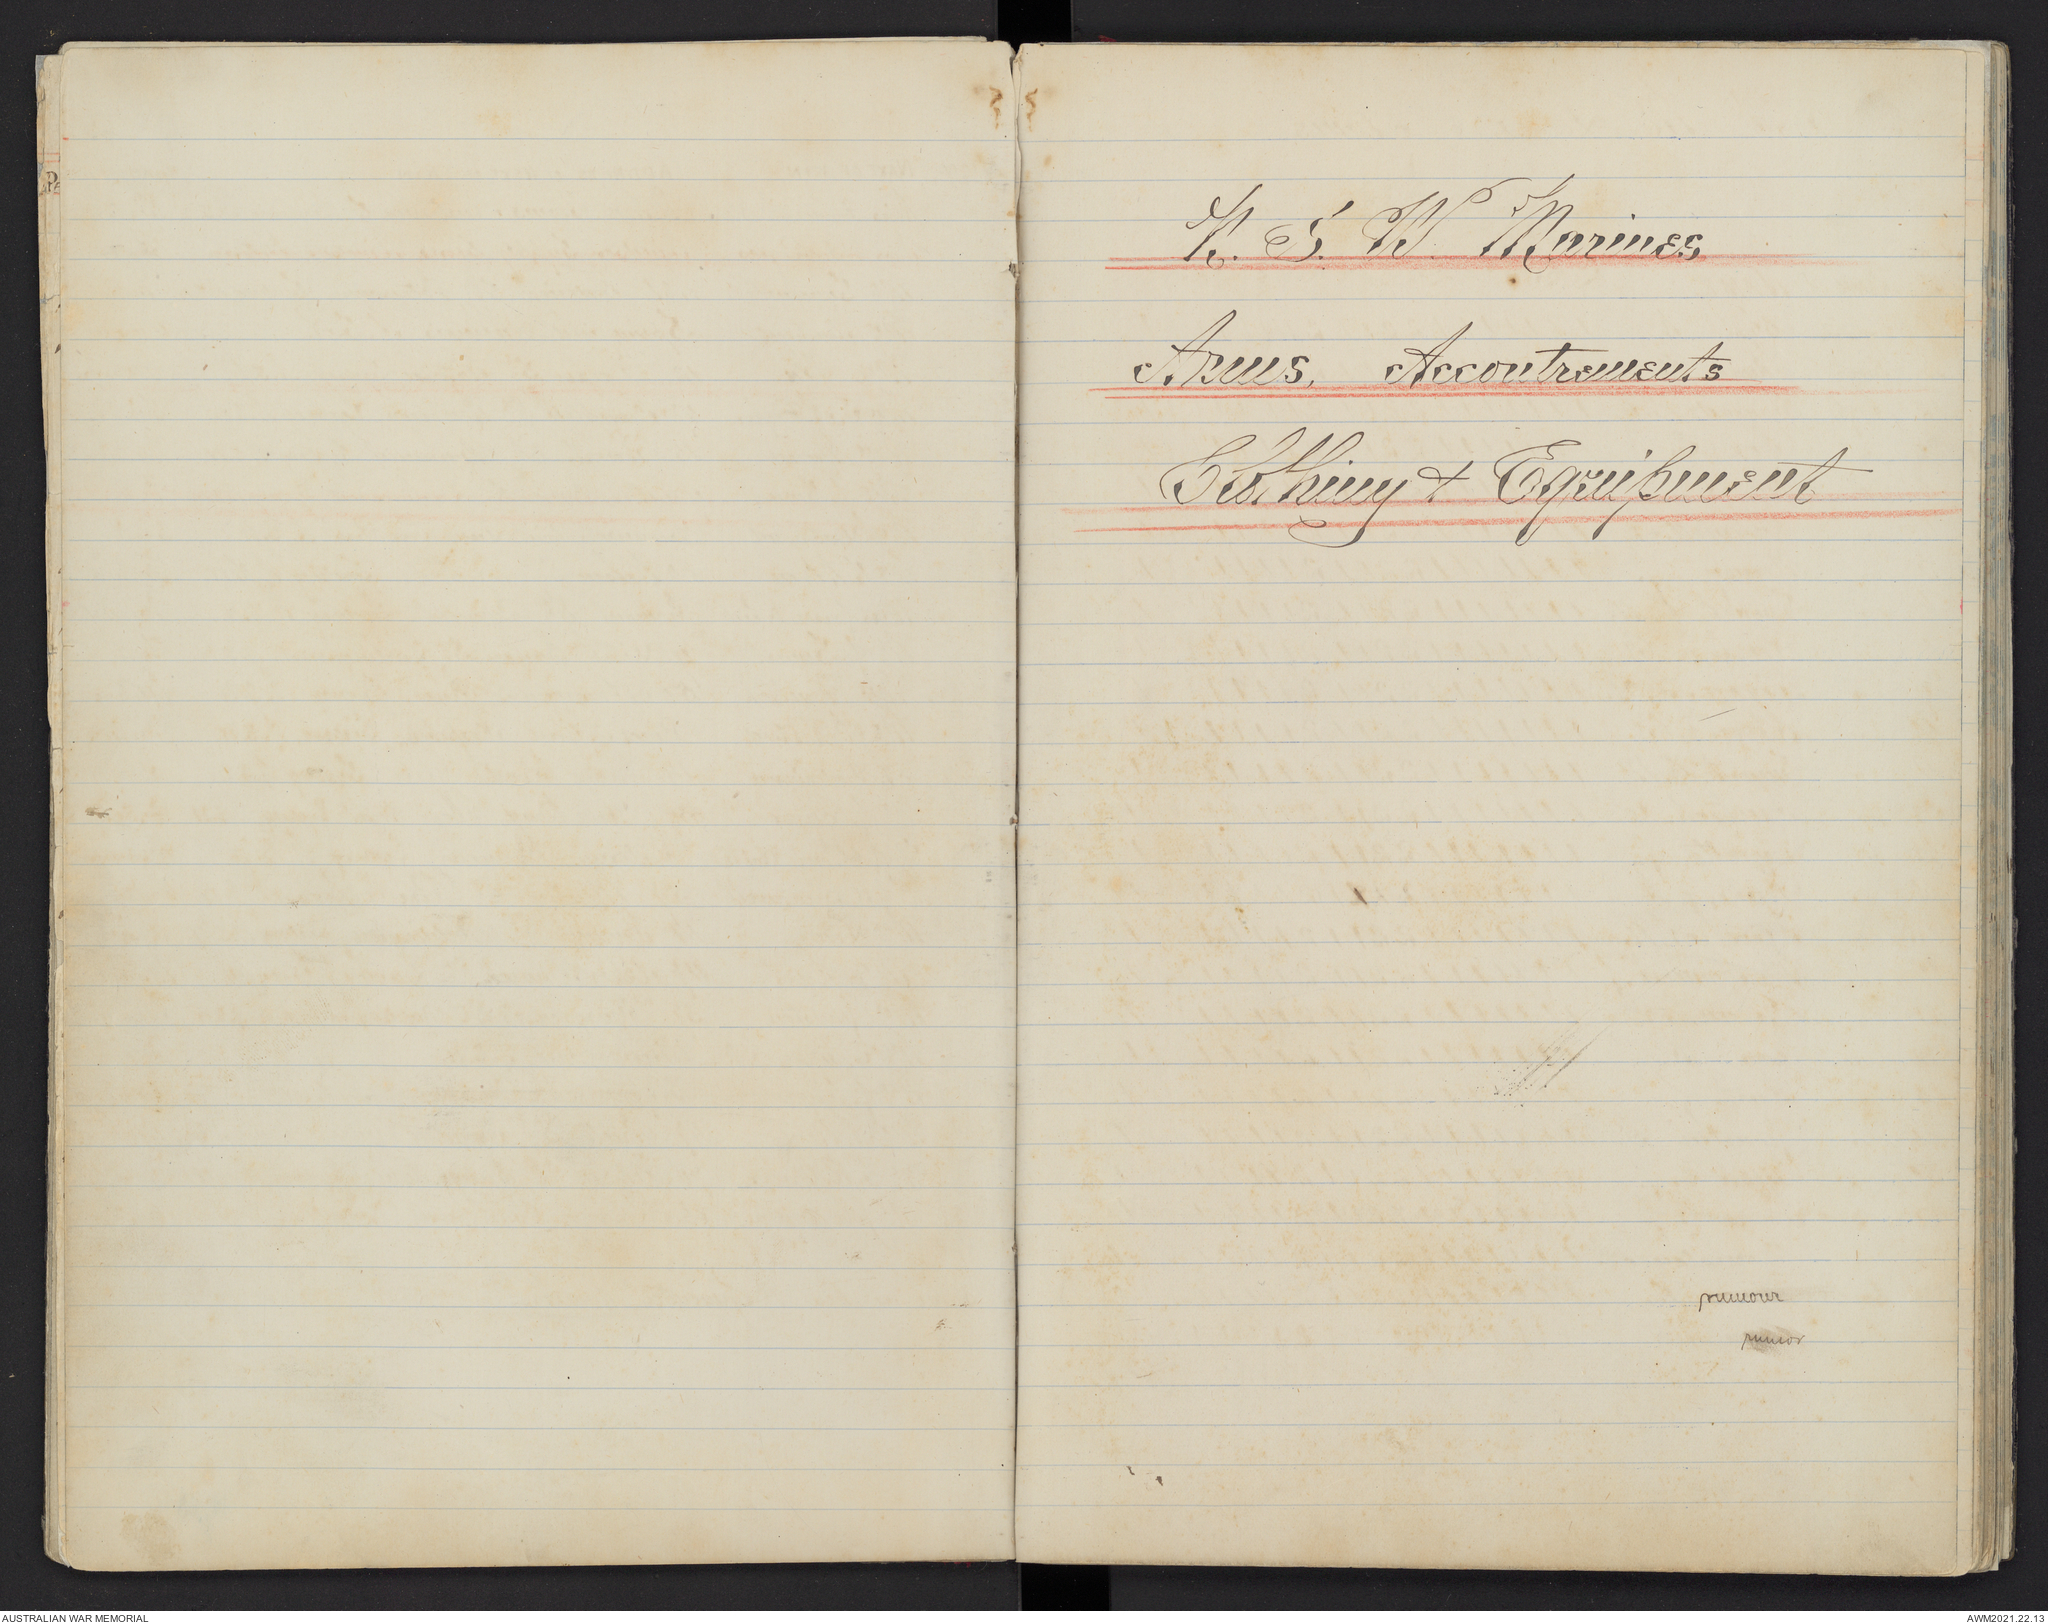 N. S. W. Marines
Arms, Accoutrements
Clothing & Equipment
rumour
rumor
AUSTRALIAN WAR MEMORIAL
AWM2021.22.13